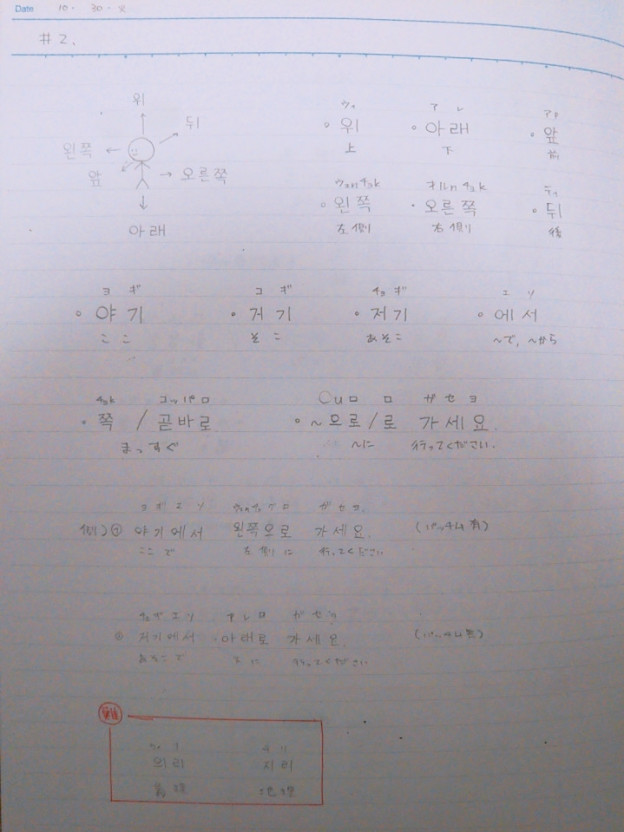 Date 10. 30. 火
# 2.
위
뒤
왼쪽
앞
오른쪽
아래
ウィ ア レ アプ
위 아래 앞
上 下 前
ウェn チョk オルn チョk ティ
왼쪽 오른쪽 뒤
左側 右側 後
ヨ ギ コ ギ チョ ギ エ ソ
야기 거기 저기 에서
ここ そこ あそこ ~で、~から
チョk コッパロ ウロ ロ ガセヨ
쪽 / 곧바로 ~으로/로 가세요.
まっすぐ ~に 行ってください.
ヨギエソ ガセヨ.
例) ① 야기에서 왼쪽으로 가세요. (パッチム有)
ここで 左側に 行ってください
チョギエソ アレロ ガセヨ
② 저기에서 아래로 가세요. (パッチム無)
あそこで 下に 行ってください
의리 지리
義理 地理